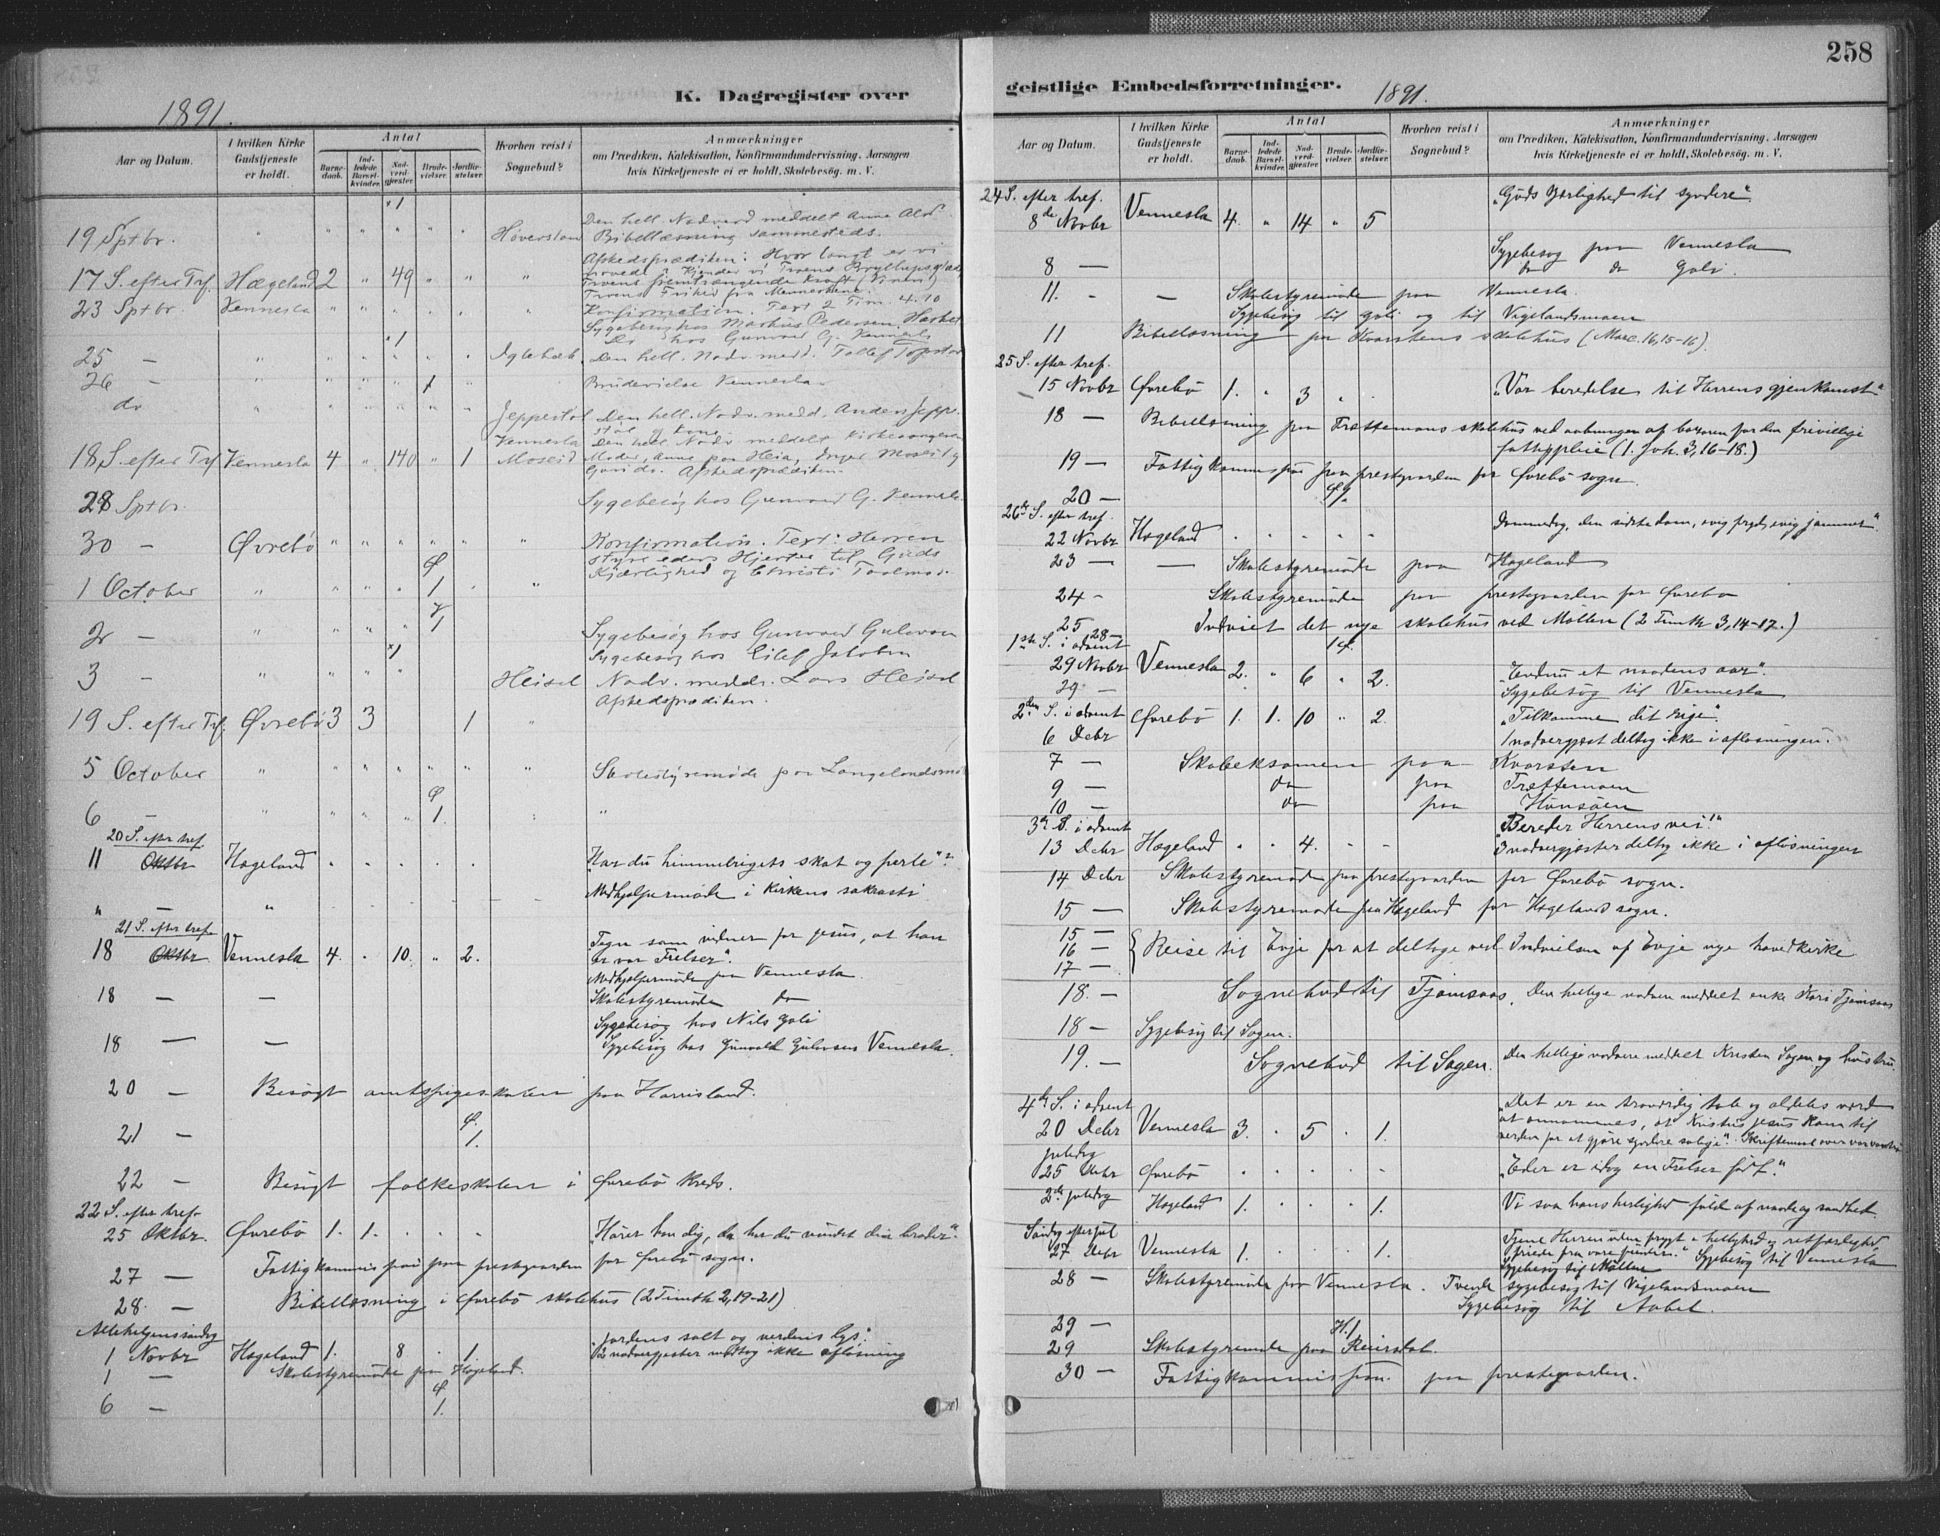 258
K. Dagregister over
geistlige Embedsforretninger.
1891.
Aar og Datum.
I hvilken Kirke Gudstjeneste er holdt.
Antal
Barnedaab.
Indledede Barselkvinder.
Nadverdgjester
Brudevielser
Jordfæstelser
Hvorhen reist i Sognebud?
Anmærkninger
om Prædiken, Katekisation, Konfirmandundervisning, Aarsagen
hvis Kirketjeneste ei er holdt, Skolebesög. m. V.
×1 Den hell. Nadverd meddelt Anne
19 Sptbr. " " " " " " Høversland Bibellæsning sammesteds.
Afskedsprædiken: Hvor langt er vi
17 S. efter Trf. Hægeland 2 " 49 " " "
23 Sptbr. Vennesla " " " " "
Konfirmation. Text 2 Tim. 4.10
Sygebesøg hos Markus Pedersen
Do hos Gunvor G. Vennesla
25 — " " " ×1 " " Den hell. Nadv. medd. Tollef
26 — " " " " 1 " Brudevielse Vennesla
do " " " " " " Jeppestøl Den hell. Nadv. medd. Anders Jeppestøl og Kone
Vennesla Den hell. Nadv. meddelt Kirkesangeren
18 S. efter Trf Vennesla 4 " 140 " 1 Moseid Moder, Anne paa Heia, Inger Moseid
Afskedsprædiken
28 Sptbr. Sygebesøg hos Gunvor G. Vennesla
30 — Øvrebø " " " " " " Konfirmation. Text: Herren
styre eders Hjerter til Guds
Ø Kjærlighed og Christi Taalmod.
1 October " " " " 1 " "
V
2 — " " " " 1 Sygebesøg hos Gunvor Gulovson
×1 Sygebesøg hos Eilef Jakobsen
3 — " " " " Heisel Nadv. meddt. Lars Heisel
Afskedsprædiken.
19 S. efter Trf. Øvrebø 3 3 1 "
5 October " " " " " " " Skolestyremøde paa Langelandsmo
Ø
6 — " " " " 1. " "
20 S. efter tref.
11 Oktbr Hægeland . . . . . "Har du himmelrigets skat og perle"?
" — " Medhjelpermøde i kirkens sakristi
21 S. efter tref.
18 Oktbr Vennesla 4. . 10. " 2. "Tegn som vidner for Jesus, at han
er vor Frelser".
Medhjelpermøde paa Vennesla
18 — — Skolestyremøde do
Sygebesøg hos Nils Goli
18 — — Sygebesøg hos Gunvald Gulovsen Vennesla.
20 — Besøgt amtspigeskolen paa Harrisland.
Ø.
21 — 1.
22 — Besøgt folkeskolen i Øvrebø kreds.
22 S. efter tref.
25 Oktbr. Øvrebø 1. 1. . . . "Hører han dig, da har du vundet din broder."
27 — Fattigkommission paa prestegaarden for Øvrebø sogn.
28. — Bibellæsning i Øvrebø skolehus (2 Timoth 2,19-21)
Allehelgenssøndag "Jordens salt og verdens lys".
1 Novbr Hægeland 1. 8 . 1. 2 nadvergjester modtog ikke afløsning
1 — Skolestyremøde paa Hægeland.
Ø
6 — 1.
1891.
Aar og Datum.
I hvilken Kirke Gudstjeneste er holdt.
Antal
Barnedaab.
Indledede Barselkvinder.
Nadverdgjester
Brudevielser
Jordfæstelser
Hvorhen reist i Sognebud?
Anmærkninger
om Prædiken, Katekisation, Konfirmandundervisning, Aarsagen
hvis Kirketjeneste ei er holdt, Skolebesög. m. V.
24 S. efter tref.
8de Novbr Vennesla 4. " 14 " 5 "Guds kjerlighed til syndere".
8 — Sygebesøg paa Vennesla
do do Goli.
11. - — Skolestyremøde paa Vennesla
Sygebesøg til Goli og til Vigelandsmoen
11 Bibellæsning paa Kvarstens skolehus (Marc. 16, 15-16)
25 S. efter tref.
15 Novbr Øvrebø 1. " 3 " . "Vor beredelse til Herrens gjenkomst"
18 — Bibellæsning paa Trættemoens skolehus ved aabningen af basaren for den frivillige
fattigpleie (1. Joh. 3, 16-18.)
19 — Fattigkommission paa prestegaarden for Øvrebø sogn.
20 — Ø/1.
26de S. efter tref.
22 Novbr Hægeland . . . . . "Dommedag, den sidste dom, evig fryd, evig jammer".
23 — — Skolestyremøde paa Hægeland
24 - Skolestyremøde paa prestegaarden for Øvrebø
25 Indviet det nye skolehus ved Møllen (2 Timth 3, 14-17.)
28 —
1ste S. i advent
29 Novbr Vennesla 2. " 6 " 2. "Endnu et naadens aar".
29 — Sygebesøg til Vennesla
2den S. i advent
6 Debr Øvrebø 1. 1. 10 " 2. "Tilkomme dit rige".
1 nadvergjest deltog ikke i afløsningen.
7 — Skoleeksamen paa Kvarsten
9 — do paa Trættemoen
10 — do paa Hønsåen
3de S. i advent "Bereder Herrens vei!"
13 Debr Hægeland " " 4. - - 3 nadvergjester deltog ikke i afløsningen
14 Debr Skolestyremøde paa prestegaarden for Øvrebø sogn.
15 — Skolestyremøde paa Hægeland for Hægelands sogn.
15 —
16 — { Reise til Evje for at deltage ved Indvielsen af Evje nye hovedkirke
17 —
18. — Sognebud til Tjomsaas. Den hellige nadvere meddelt enke Kari Tjomsaas
18 — Sygebesøg til Sagen.
19. — Sognebud til Sagen. Den hellige nadvere meddelt Kristen Sagen og hustru.
4de S. i advent "Det er en troværdig tale og aldeles værd
20 Debr Vennesla 3. . 5 . 1. at annammes, at Kristus Jesus kom til
verden for at gjøre syndere salige". Skriftemaal over
Juledag
25 Debr Øvrebø . . . . - "Eder er idag en Frelser født."
2de juledag Hægeland 1. . . . 1. Vi saa hans herlighed fuld af naade og sandhed.
Søndag efter jul
27 Debr Vennesla 1. . . . 1. Tjene Herren uden frygt i hellighed og retfærdighed,
friede fra vore fiender." Sygebesøg til Vennesla
Sygebesøg til Møllen
28 — Skolestyremøde paa Vennesla. Tvende sygebesøg til Vigelandsmoen
Sygebesøg til Aabel.
29 — H/1
29 Skolestyremøde paa Reiersdal.
30 — Fattigkommission paa prestegaarden.